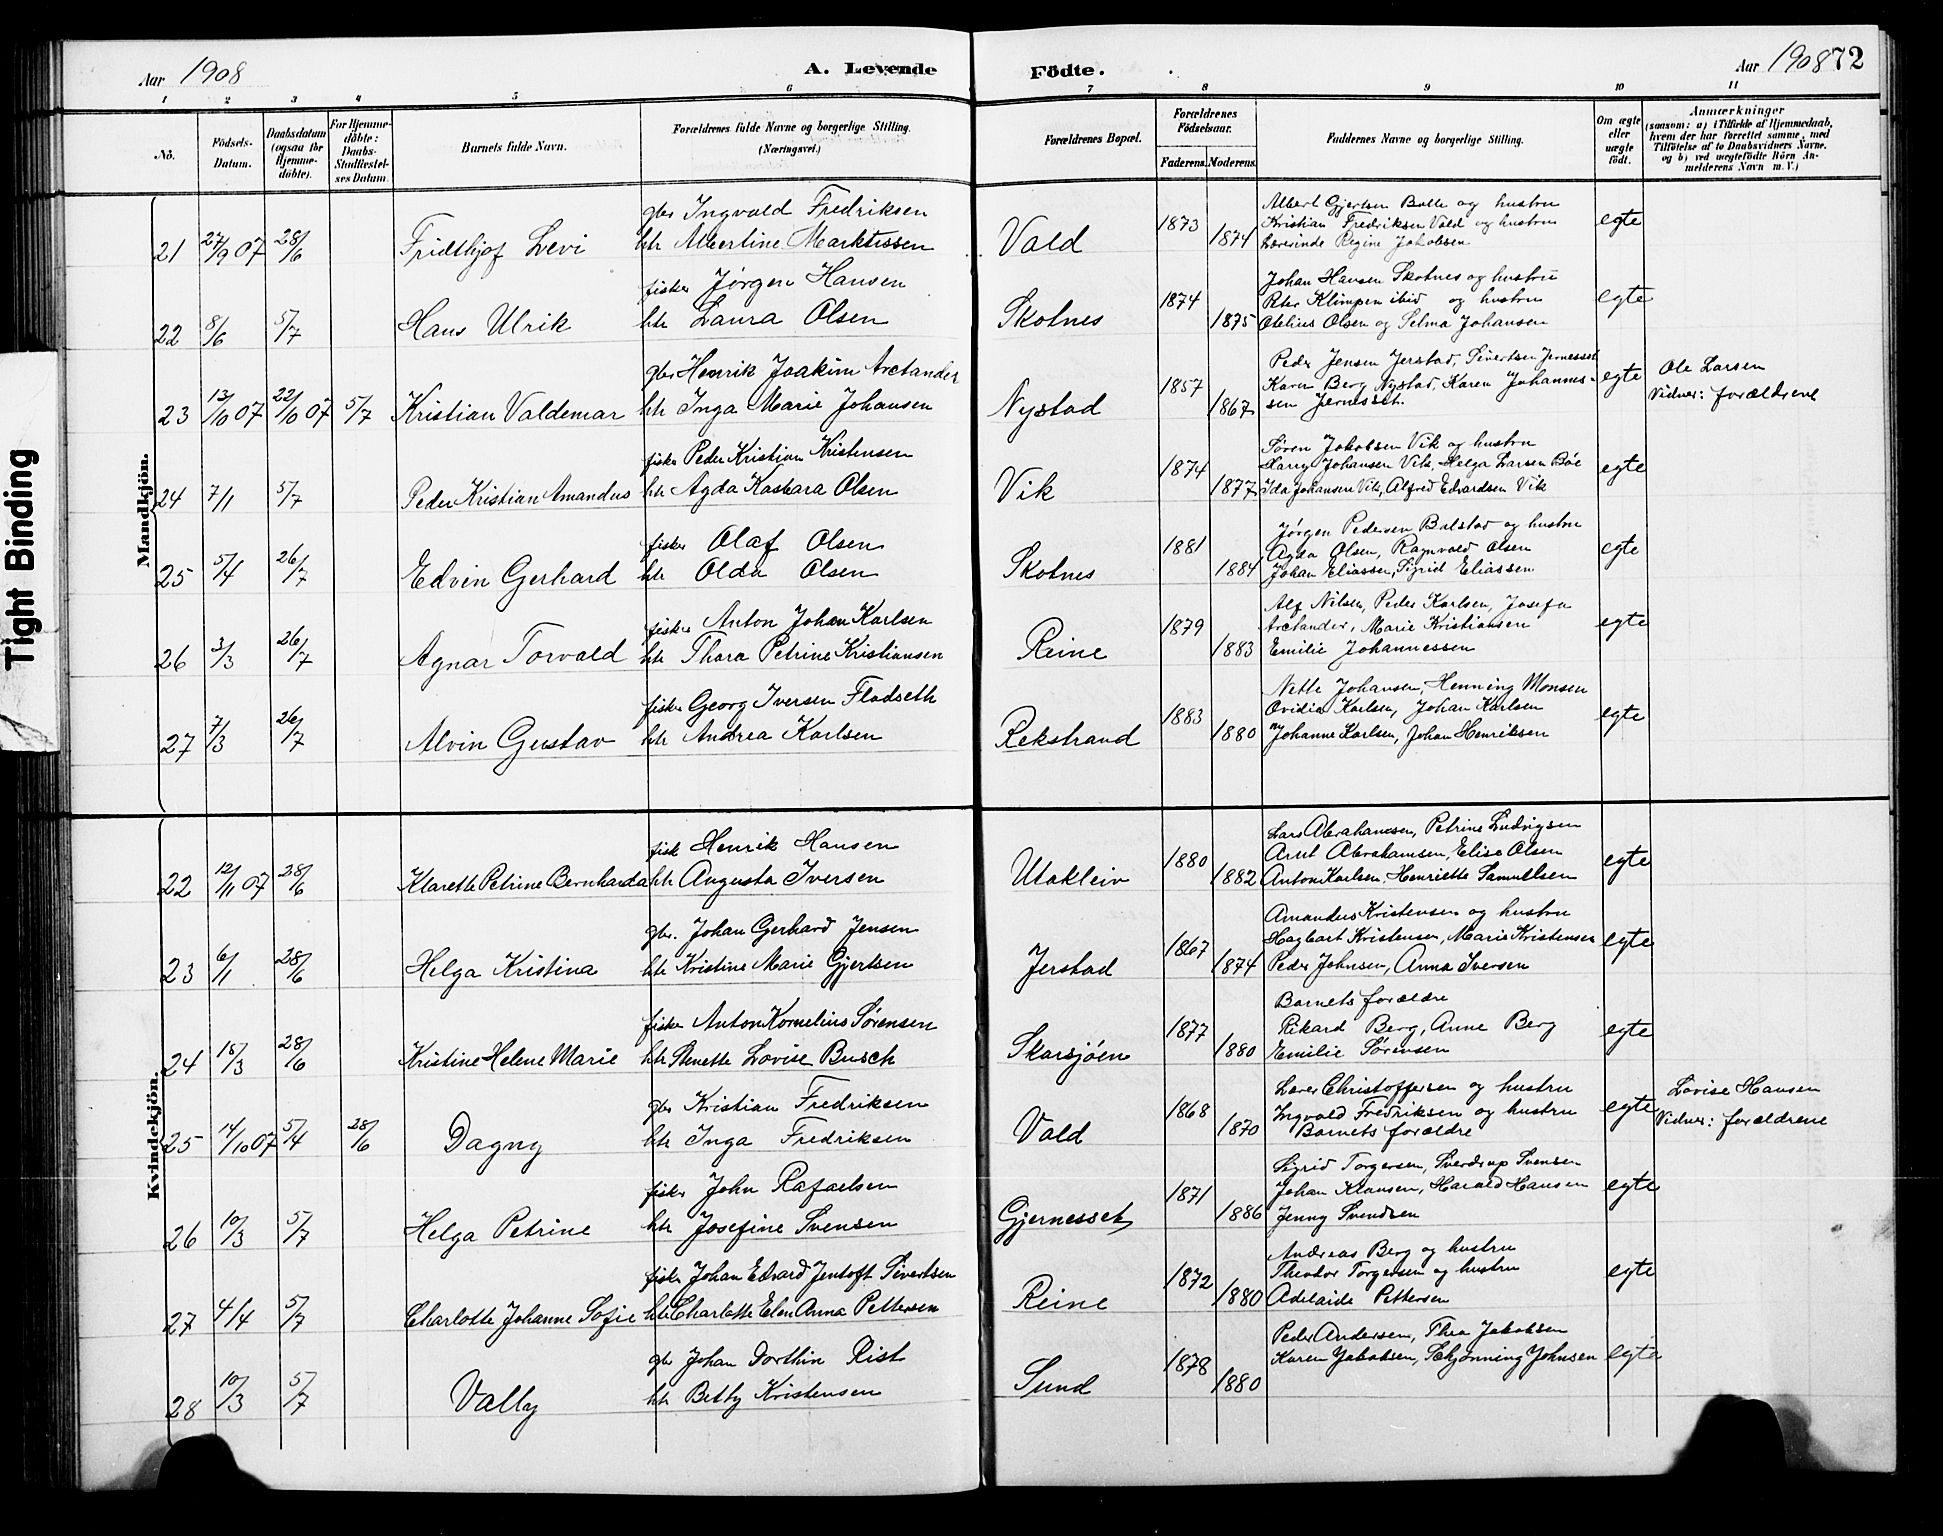 Aar 1908
A. Levende
Födte.
Aar 1908 72
1 2 3 4 5 6 7 8 9 10 11
Nö.
Födsels-
Datum.
Daabsdatum
(ogsaa for
Hjemme-
döbte).
For Hjemme-
döbte:
Daabs-
Stadfæstel-
ses Datum.
Barnets fulde Navn.
Forældrenes fulde Navne og borgerlige Stilling.
(Næringsvei.)
Forældrenes Bopæl.
Forældrenes
Födselsaar.
Faderens. Moderens.
Faddernes Navne og borgerlige Stilling.
Om ægte
eller
uægte
födt.
Anmærkninger
(saasom: a) i Tilfælde af Hjemmedaab,
hvem der har forrettet samme, med
Tilföielse af to Daabsvidners Navne.
og b) ved uægtefödte Börn An-
melderens Navn m. V.)
Mandkjön.
21 27/9 07 28/6 Fridthjof Levi
gbr Ingvald Fredriksen
htr Albertine Marktissen
Vald 1873 1874
Albert Gjertsen Balle og hustru
Kristian Fredriksen Vald og hustru
Lovinde Regine Jakobsen
egte
22 8/6 5/7 Hans Ulrik
fisker Jørgen Hansen
htr Laura Olsen
Skotnes 1874 1875
Johan Hansen Skotnes og hustru
Peter Klimpen ibid og hustru
Otelius Olsen og Selma Johansen
egte
23 13/10 07 22/10 07 5/7 Kristian Valdemar
gbr Henrik Joakim Arctander
htr Inga Marie Johansen
Nystad 1857 1867
Peder Jensen Jerstad, Sivertsen Jernesset
Karen Berg Nystad, Karen Johannes-
sen Jernesset.
egte
Ole Larsen
Vidner: forældrene
24 7/1 5/7 Peder Kristian Amandus
fisker Peder Kristian Kristensen
htr Agda Kasbara Olsen
Vik 1874 1877
Søren Jakobsen Vik og hustru
Harry Johansen Vik, Helga Larsen Böe
Ida Johansen Vik, Alfred Edvardsen Vik
egte
25 5/4 26/7 Edvin Gerhard
fisker Olaf Olsen
htr Olda Olsen
Skotnes 1881 1884
Jørgen Pedersen Bulstad og hustru
Agda Olsen, Ragnvald Olsen
Johan Eliassen, Sigrid Eliassen
egte
26 3/3 26/7 Agnar Torvald
fisker Anton Johan Karlsen
htr Thora Petrine Kristiansen
Reine 1879 1883
Alf Nilsen, Peder Karlsen, Josefa
Arctander, Marie Kristiansen
Emilie Johannessen
egte
27 7/3 26/7 Alvin Gustav
fisker Georg Iversen Fladseth
htr Andrea Karlsen
Rekstrand 1883 1880
Nette Johansen, Henning Monsen
Ovidia Karlsen, Johan Karlsen
Johanne Karlsen, Johan Henriksen
egte
Kvindekjön.
22 12/11 07 28/6 Klarette Petrine Bernharda
fisk Henrik Hansen
htr Augusta Iversen
Utakleiv 1880 1882
Lars Abrahamsen, Petrine Ludvigsen
Arnt Abrahamsen, Elise Olsen
Anton Karlsen, Henriette Samuelsen
egte
23 6/1 28/6 Helga Kristina
gbr. Johan Gerhard Jensen
htr Kristine Marie Gjertsen
Jerstad 1867 1874
Amandus Kristensen og hustru
Hagbart Kristensen, Marie Kristensen
Peder Johnsen, Anna Iversen
egte
24 18/3 28/6 Kristine Helene Marie
fisker Anton Kornelius Sørensen
htr Nenette Lovise Busch
Skarsjöen 1877 1880
Barnets forældre
Rikard Berg, Anne Berg
Emilie Sørensen
egte
25 14/10 07 5/4 28/6 Dagny
gbr Kristian Fredriksen
htr Inga Fredriksen
Vald 1868 1870
Christoffersen og hustru
Ingvald Fredriksen og hustru
Barnets forældre
egte
Lovise Hansen
Vidner: forældrene
26 10/3 5/7 Helga Petrine
fisker John Rafaelsen
htr Josefine Svensen
Gjernesset 1871 1886
Sigrid Torgersen, Sverdrup Svensen
Johan Klausen, Harald Hansen
Jenny Svendsen
egte
27 4/4 5/7 Charlotte Johanne Sofie
fisker Johan Edvard Jentoft Sivertsen
htr Charlotte Elen Anna Pettersen
Reine 1872 1880
Andreas Berg og hustru
Theodor Torgersen og hustru
Adelaide Pettersen
egte
28 10/3 5/7 Vally
gbr Johan Dorthin Rist
htr Betty Kristensen
Sund 1878 1880
Peder Andersen, Thea Jakobsen
Karen Jakobsen, Schjønning Johnsen
egte
Tight Binding